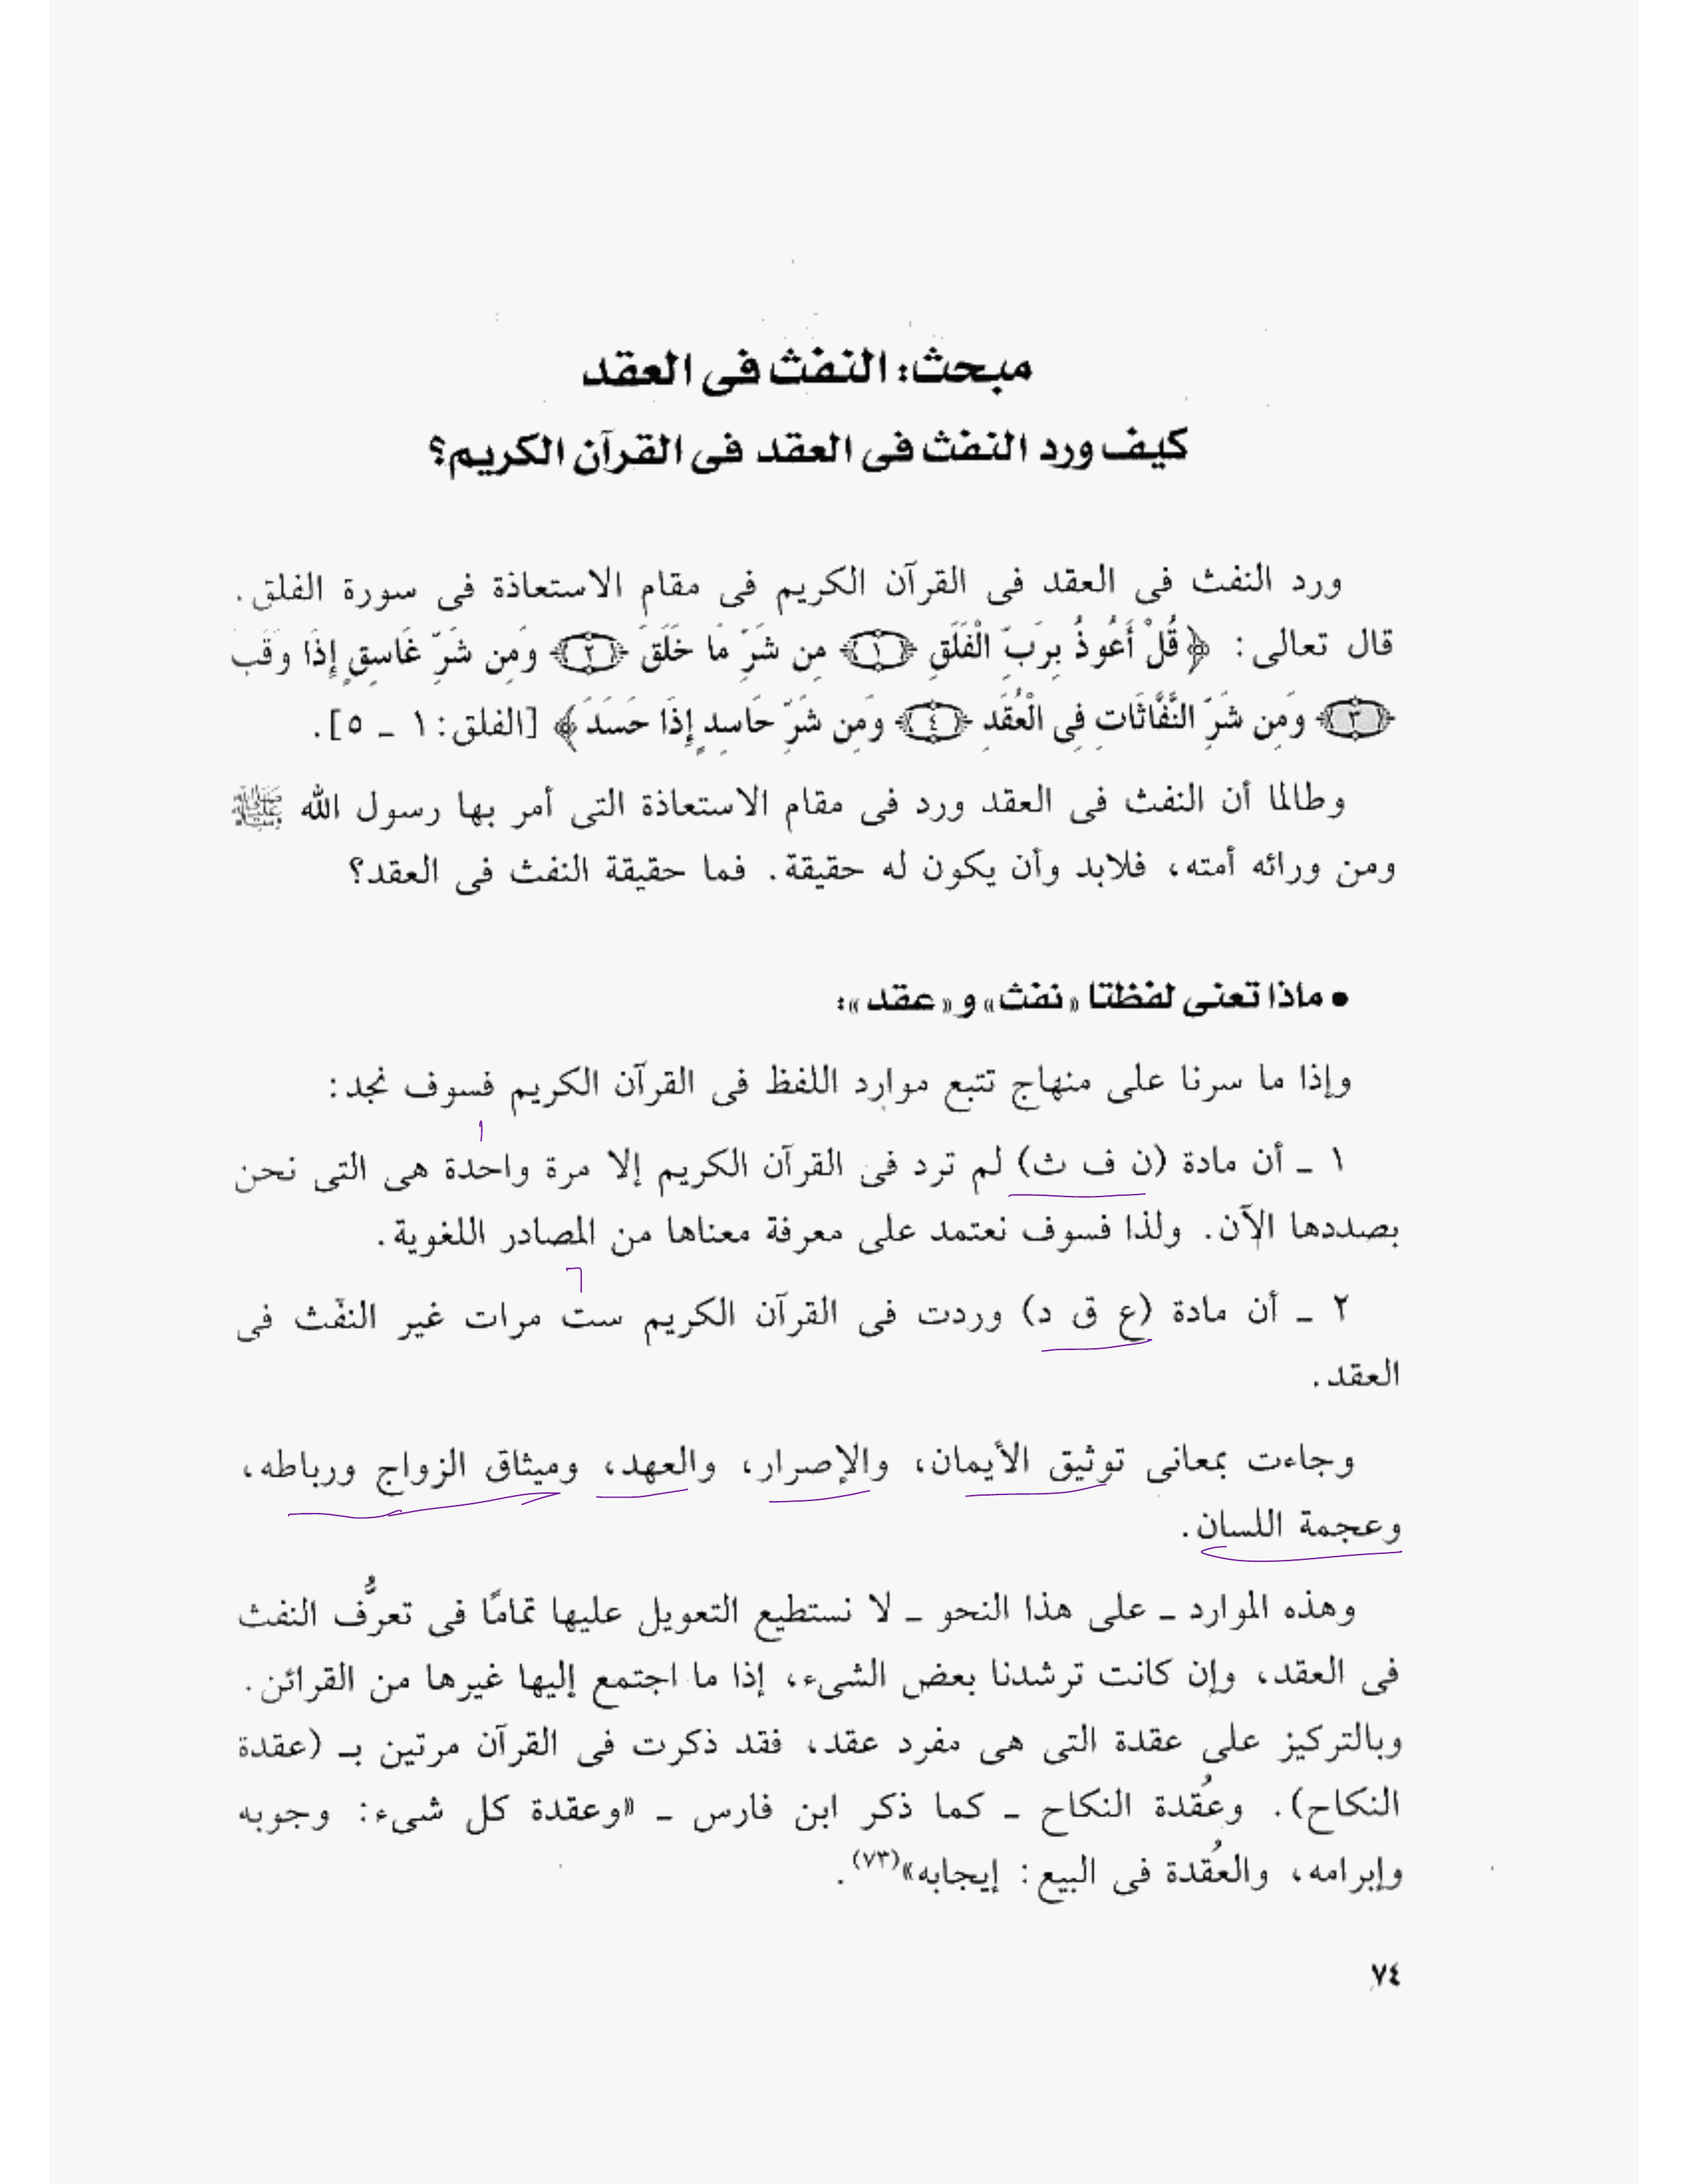 مبحث: النفث فى العقد
كيف ورد النفث فى العقد فى القرآن الكريم؟
ورد النفث فى العقد فى القرآن الكريم فى مقام الاستعاذة فى سورة الفلق.
قال تعالى: ﴿قُلْ أَعُوذُ بِرَبِّ الْفَلَقِ ﴿١﴾ مِن شَرِّ مَا خَلَقَ ﴿٢﴾ وَمِن شَرِّ غَاسِقٍ إِذَا وَقَبَ
﴿٣﴾ وَمِن شَرِّ النَّفَّاثَاتِ فِى الْعُقَدِ ﴿٤﴾ وَمِن شَرِّ حَاسِدٍ إِذَا حَسَدَ﴾ [الفلق: ١ ـ ٥].
وطالما أن النفث فى العقد ورد فى مقام الاستعاذة التى أمر بها رسول الله ﷺ
ومن ورائه أمته، فلابد وأن يكون له حقيقة. فما حقيقة النفث فى العقد؟
• ماذا تعنى لفظتا «نفث» و«عقد»:
وإذا ما سرنا على منهاج تتبع موارد اللفظ فى القرآن الكريم فسوف نجد:
١
١ ـ أن مادة (ن ف ث) لم ترد فى القرآن الكريم إلا مرة واحدة هى التى نحن
بصددها الآن. ولذا فسوف نعتمد على معرفة معناها من المصادر اللغوية.
٦
٢ ـ أن مادة (ع ق د) وردت فى القرآن الكريم ست مرات غير النفْث فى
العقد.
وجاءت بمعانى توثيق الأيمان، والإصرار، والعهد، وميثاق الزواج ورباطه،
وعجمة اللسان.
وهذه الموارد ـ على هذا النحو ـ لا نستطيع التعويل عليها تمامًا فى تعرُّف النفث
فى العقد، وإن كانت ترشدنا بعض الشىء، إذا ما اجتمع إليها غيرها من القرائن.
وبالتركيز على عقدة التى هى مفرد عقد، فقد ذكرت فى القرآن مرتين بـ (عقدة
النكاح). وعُقدة النكاح ـ كما ذكر ابن فارس ـ «وعقدة كل شىء: وجوبه
وإبرامه، والعُقدة فى البيع: إيجابه»(٧٣).
٧٤